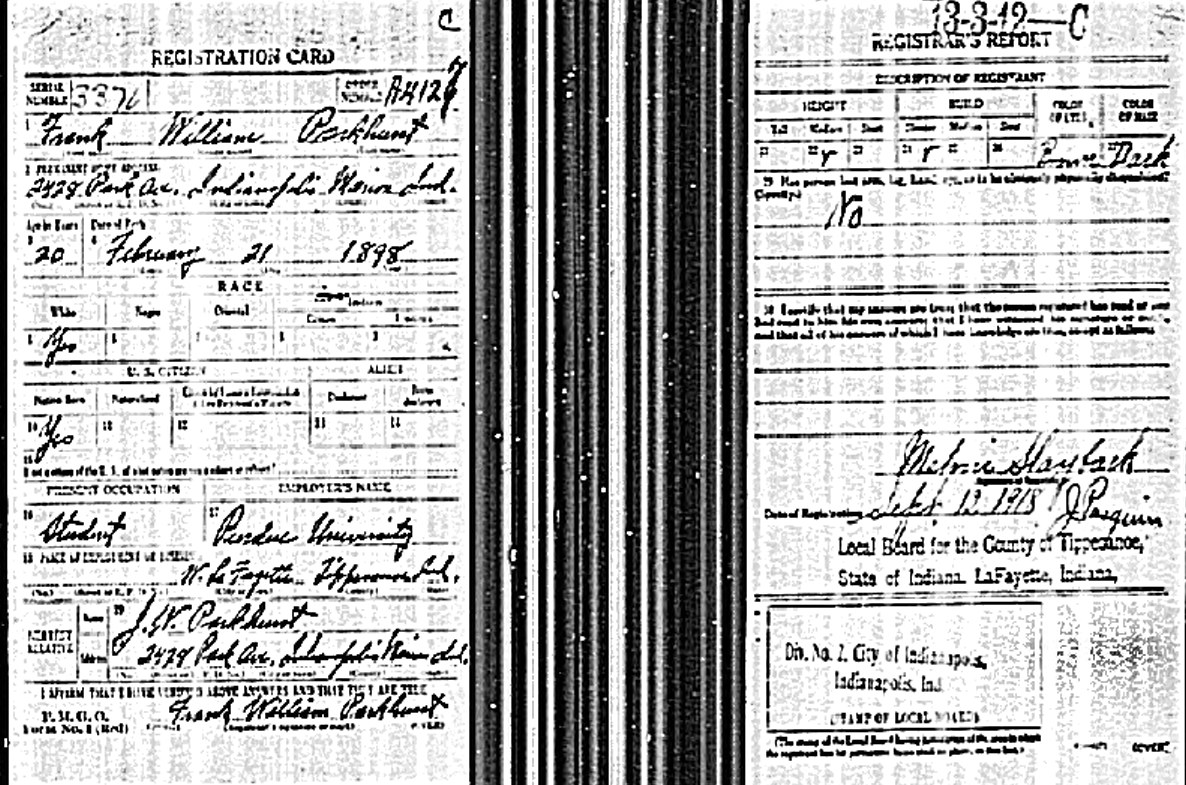 C
REGISTRATION CARD
SERIAL NUMBER 3376 ORDER NUMBER A4126
1 Frank William Parkhurst
2 PERMANENT HOME ADDRESS
2428 Park Av. Indianapolis Marion Ind.
Age in Years Date of Birth
3 20 4 February 21 1898
RACE
White Negro Oriental Indian
5 Yes 6 7 8 9
U.S. CITIZEN ALIEN
Native Born Naturalized Declarant
10 Yes 11 12 13 14
15
PRESENT OCCUPATION EMPLOYER'S NAME
16 Student 17 Purdue University
18 PLACE OF EMPLOYMENT OR BUSINESS
W. La Fayette Tippecanoe Ind.
NEAREST RELATIVE Name 19 J.W. Parkhurst
Address 2428 Park Av. Indianapolis Marion Ind.
I AFFIRM THAT I HAVE VERIFIED ABOVE ANSWERS AND THAT THEY ARE TRUE
P.M.G.O.
Form No. 1 (Red) Frank William Parkhurst
(OVER)
13-3-12—C
REGISTRAR'S REPORT
DESCRIPTION OF REGISTRANT
HEIGHT BUILD COLOR OF EYES COLOR OF HAIR
Tall Medium Short Slender Medium Stout
21 22 23 24 25 26 Dark
29 Has person lost arm, leg, hand, eye, or is he obviously physically disqualified?
(Specify.)
No
30 I certify that my answers are true; that the person registered has read or
had read to him his own answers; that I have witnessed his signature or
and that all of his answers of which I have knowledge are true, except as follows:
Slayback
Date of Registration Sept 12 1918
Local Board for the County of Tippecanoe,
State of Indiana. LaFayette, Indiana,
Div. No. 2. City of Indianapolis,
Indianapolis, Ind.
(STAMP OF LOCAL BOARD)
(The stamp of the Local Board having jurisdiction of the area in which
the registrant has his permanent home shall be placed in this box.)
(OVER)